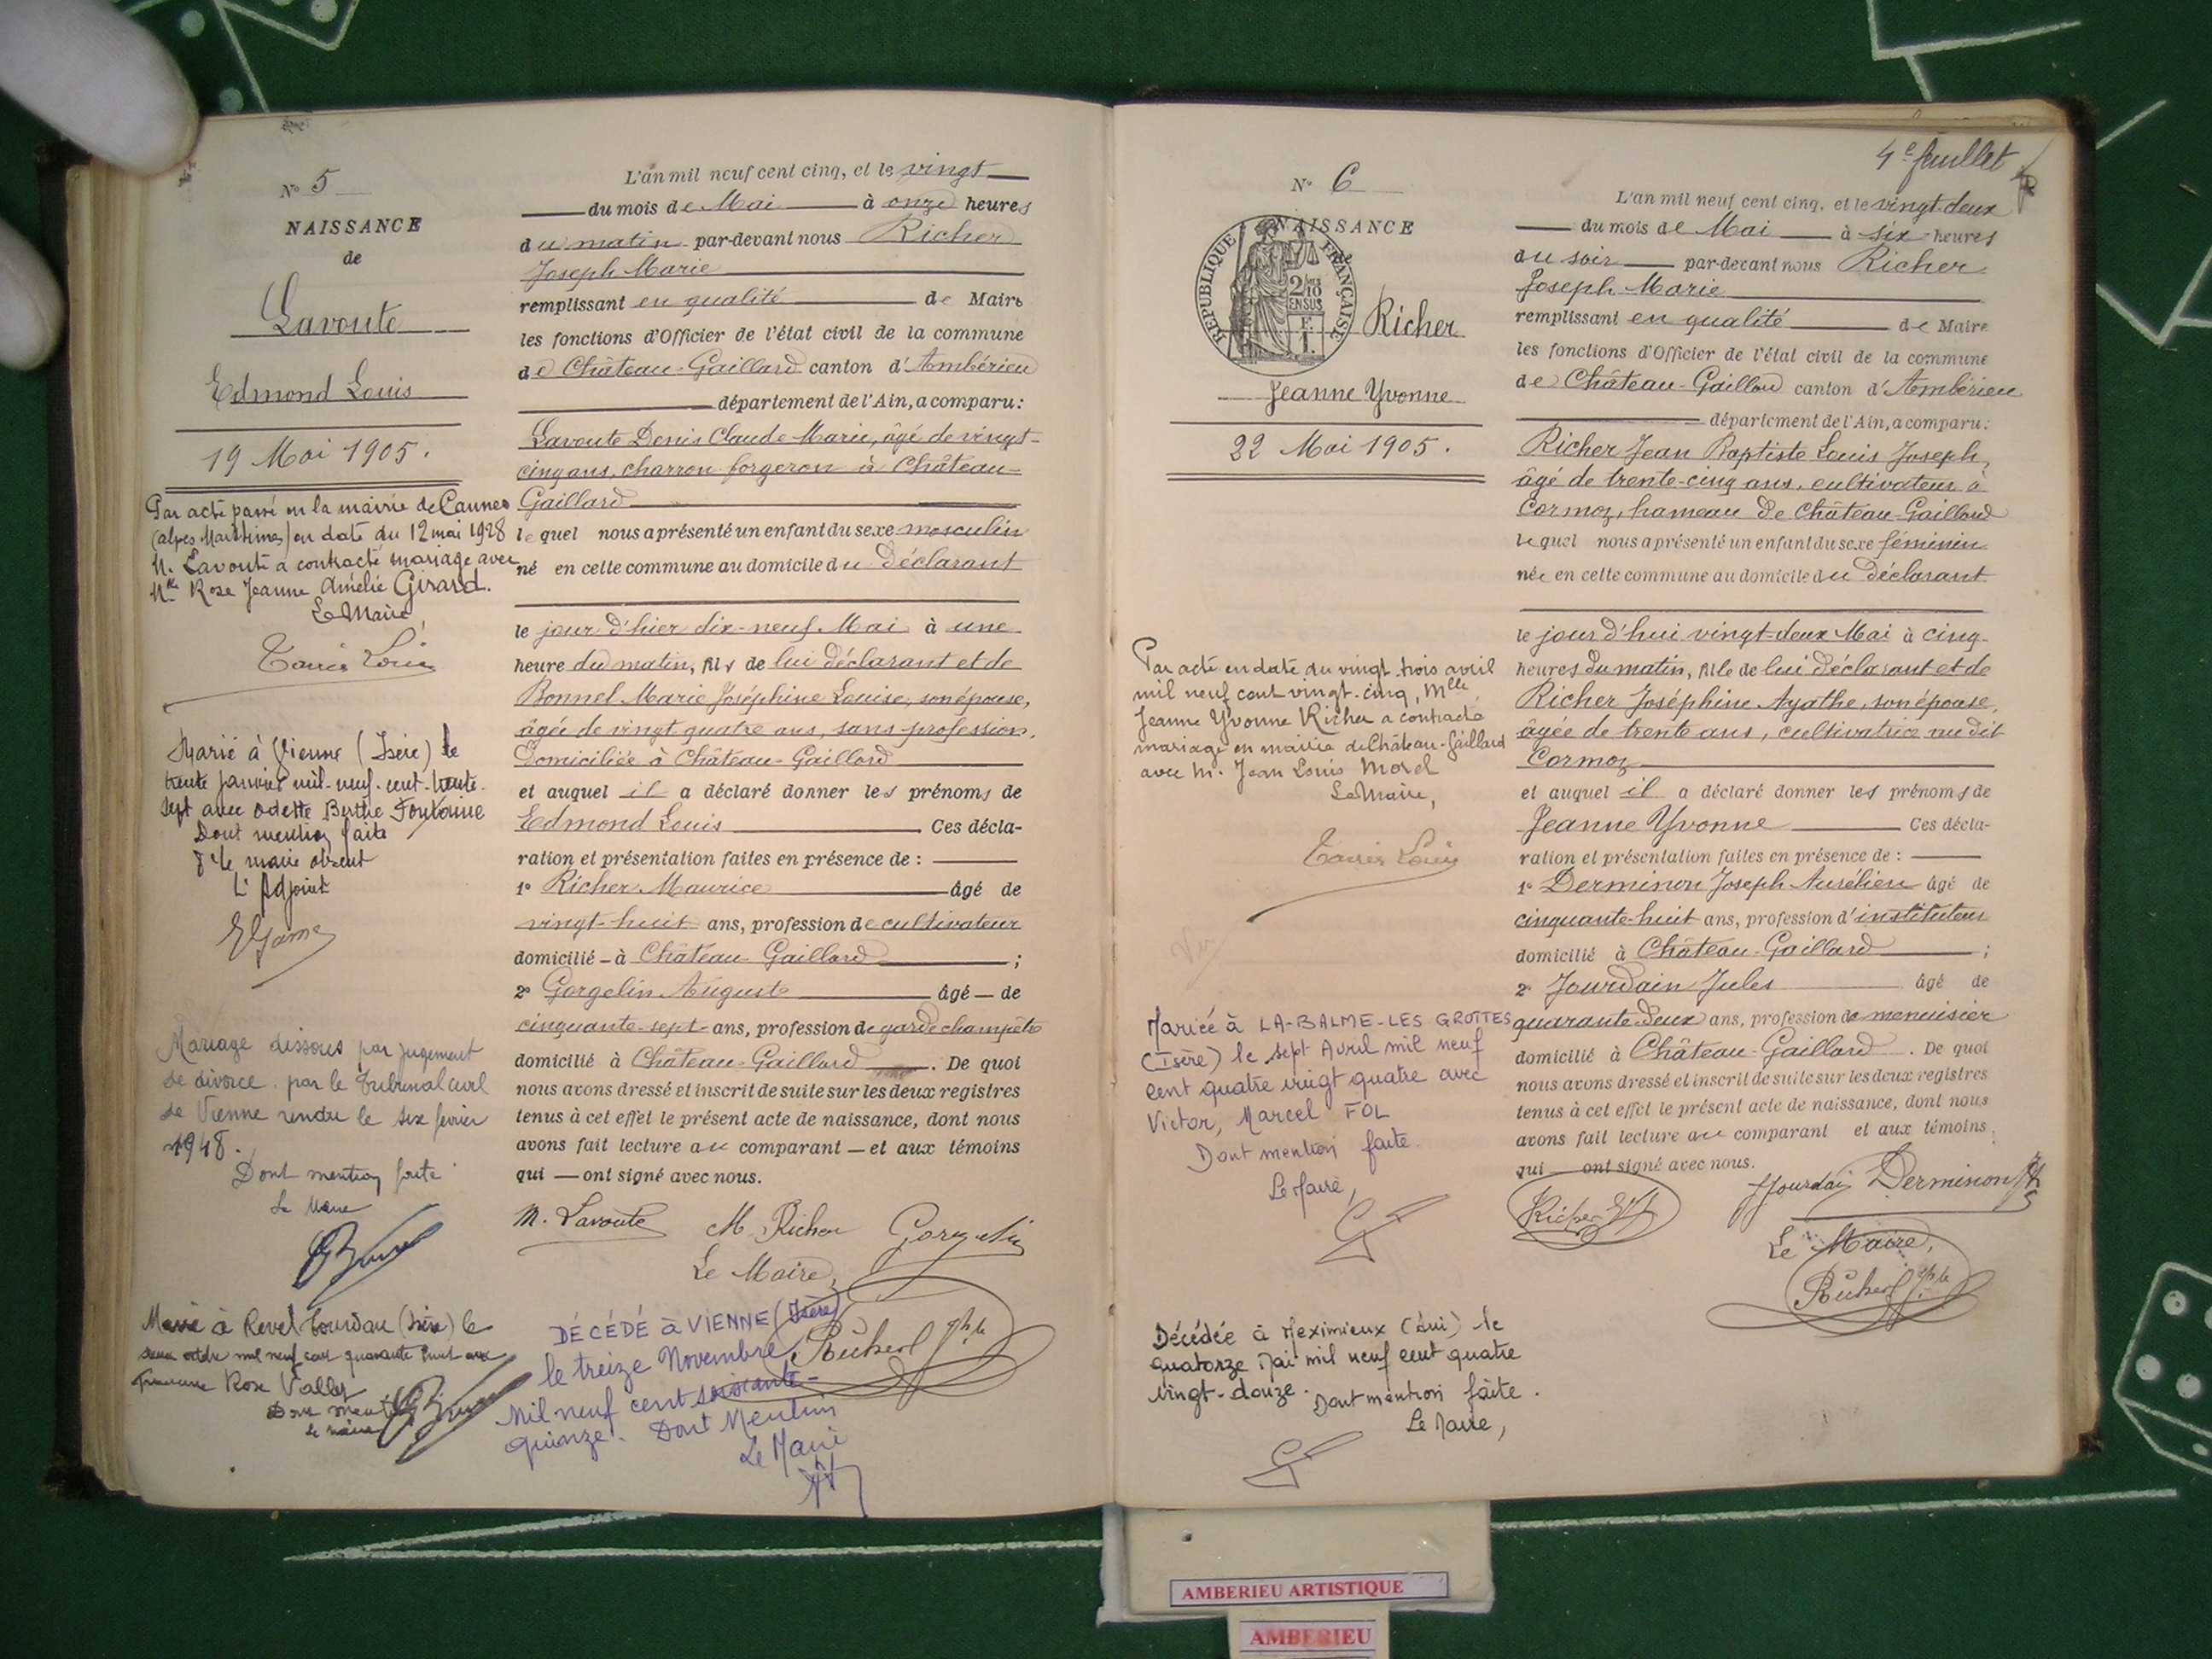 N° 5
NAISSANCE
de
Lavoute
Edmond Louis
19 Mai 1905.
Par acte passé en la mairie de Cannes
(alpes Maritimes) en date du 12 mai 1928
M. Lavoute a contracté mariage avec
Mlle Rose Jeanne Amélie Girard.
Le Maire,
Marié à Vienne (Isère) le
trente janvier mil-neuf-cent-trente-
sept avec Odette Berthe
Dont mention faite
Pr le maire absent
L'Adjoint
Mariage dissous par jugement
de divorce par le Tribunal civil
de Vienne rendu le six février
1948.
Dont mention faite
Le Maire
Marié à Revel Tourdan (Isère) le
mil neuf cent quarante huit avec
Rose Vallet
Dont mention
le maire
L'an mil neuf cent cinq, et le vingt
du mois de Mai à onze heures
du matin par-devant nous Richer
Joseph Marie
remplissant en qualité de Maire
les fonctions d'Officier de l'état civil de la commune
de Château-Gaillard canton d'Ambérieu
département de l'Ain, a comparu :
Lavoute Denis Claude Marie, âgé de vingt-
cinq ans, charron forgeron à Château-
Gaillard
lequel nous a présenté un enfant du sexe masculin
né en cette commune au domicile du déclarant
le jour d'hier dix-neuf Mai à une
heure du matin, fils de lui déclarant et de
Bonnel Marie Joséphine Louise, son épouse,
âgée de vingt quatre ans, sans profession,
Domiciliée à Château-Gaillard
et auquel il a déclaré donner les prénoms de
Edmond Louis Ces décla-
ration et présentation faites en présence de :
1° Richer Maurice âgé de
vingt-huit ans, profession de cultivateur
domicilié à Château Gaillard ;
2° Gorgelin Auguste âgé de
cinquante-sept ans, profession de garde champête
domicilié à Château-Gaillard. De quoi
nous avons dressé et inscrit de suite sur les deux registres
tenus à cet effet le présent acte de naissance, dont nous
avons fait lecture au comparant et aux témoins
qui ont signé avec nous.
M. Lavoute M. Richer Gorgelin
Le Maire,
Richer Jph
DÉCÉDÉ à VIENNE (Isère)
le treize Novembre
Mil neuf cent soixante-
quinze. Dont Mention
Le Maire
4e feuillet
N° 6
NAISSANCE
REPUBLIQUE FRANÇAISE
2/10
EN SUS
Richer
Jeanne Yvonne
22 Mai 1905.
Par acte en date du vingt-trois avril
mil neuf cent vingt-cinq, Mlle
Jeanne Yvonne Richer a contracté
mariage en mairie de Château-Gaillard
avec M. Jean Louis Morel
Le Maire,
Mariée à LA-BALME-LES GROTTES
(Isère) le sept Avril mil neuf
cent quatre vingt quatre avec
Victor, Marcel FOL
Dont mention faite.
Le Maire,
Décédée à Meximieux (Ain) le
quatorze Mai mil neuf cent quatre
vingt-douze. Dont mention faite.
Le Maire,
L'an mil neuf cent cinq, et le vingt-deux
du mois de Mai à six heures
du soir par-devant nous Richer
Joseph Marie
remplissant en qualité de Maire
les fonctions d'Officier de l'état civil de la commune
de Château-Gaillard canton d'Ambérieu
département de l'Ain, a comparu :
Richer Jean Baptiste Louis Joseph,
âgé de trente-cinq ans, cultivateur à
Cormoz, hameau de Château-Gaillard
lequel nous a présenté un enfant du sexe féminin
née en cette commune au domicile du déclarant
le jour d'hui vingt-deux Mai à cinq
heures du matin, fille de lui déclarant et de
Richer Joséphine Agathe, son épouse,
âgée de trente ans, cultivatrice au dit
Cormoz
et auquel il a déclaré donner les prénoms de
Jeanne Yvonne Ces décla-
ration et présentation faites en présence de :
1° Derminon Joseph Aurélien âgé de
cinquante-huit ans, profession d'instituteur
domicilié à Château-Gaillard ;
2° Jourdain Jules âgé de
quarante deux ans, profession de menuisier
domicilié à Château-Gaillard. De quoi
nous avons dressé et inscrit de suite sur les deux registres
tenus à cet effet le présent acte de naissance, dont nous
avons fait lecture au comparant et aux témoins,
qui ont signé avec nous.
Richer Jourdain Derminon
Le Maire,
Richer Jph
AMBERIEU ARTISTIQUE
AMBERIEU